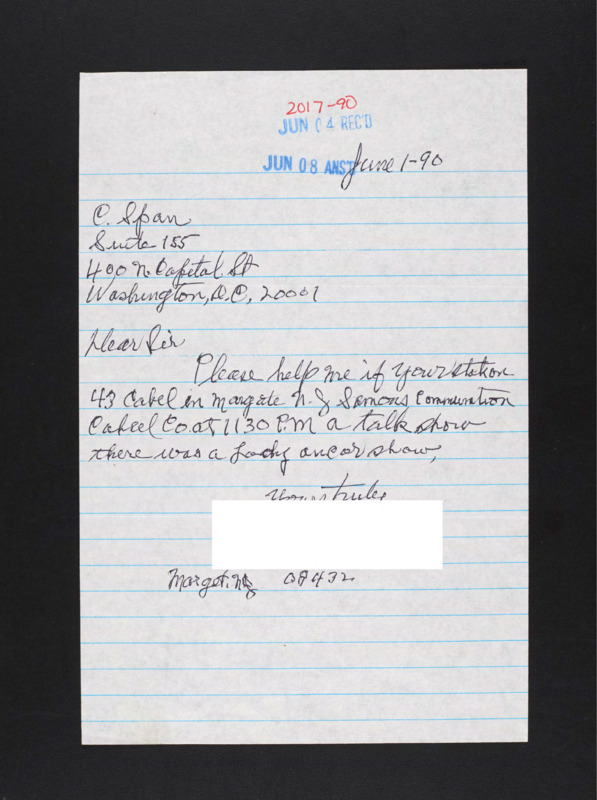 2017-90
JUN 04 REC'D
JUN 08 ANS'D
June 1-90
C. Span
Suite 155
400 N. Capital St
Washington, D.C, 20001
Dear Sir
Please help me if your station
43 Cabel in Margate N.J Samons Communation
Cabeel Co at 1130 P.M a talk show
there was a Lady ancor show,
Yours truly
Marget. NJ 08432